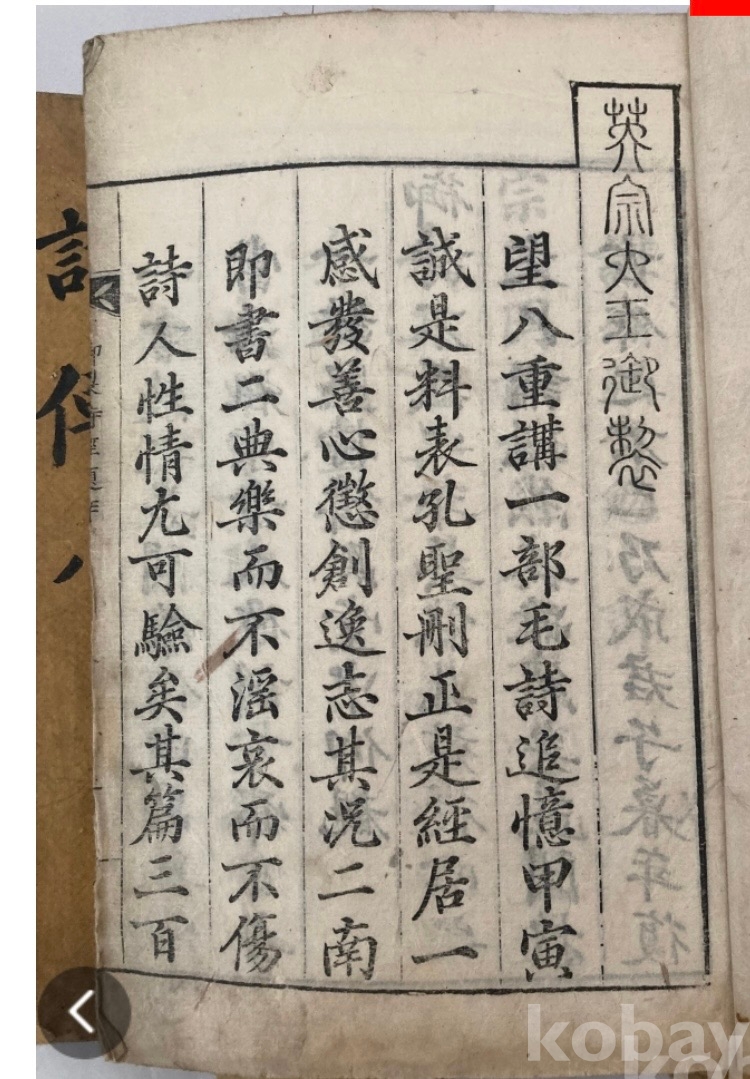 英宗大王御製
望八重講一部毛詩追憶甲寅
誠是料表孔聖刪正是經居一
感發善心懲創逸志其況二南
即書二典樂而不淫哀而不傷
詩人性情尤可驗矣其篇三百
kobay